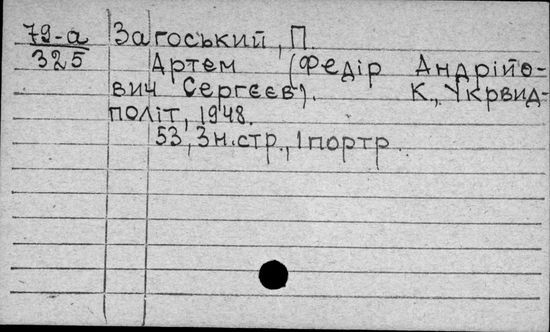 79-а Загоський, П.
325 Артем (Федір Андрійо-
вич Сергєєв). К., Укрвид-
політ, 1948.
53, 3 н.стр., 1 портр.